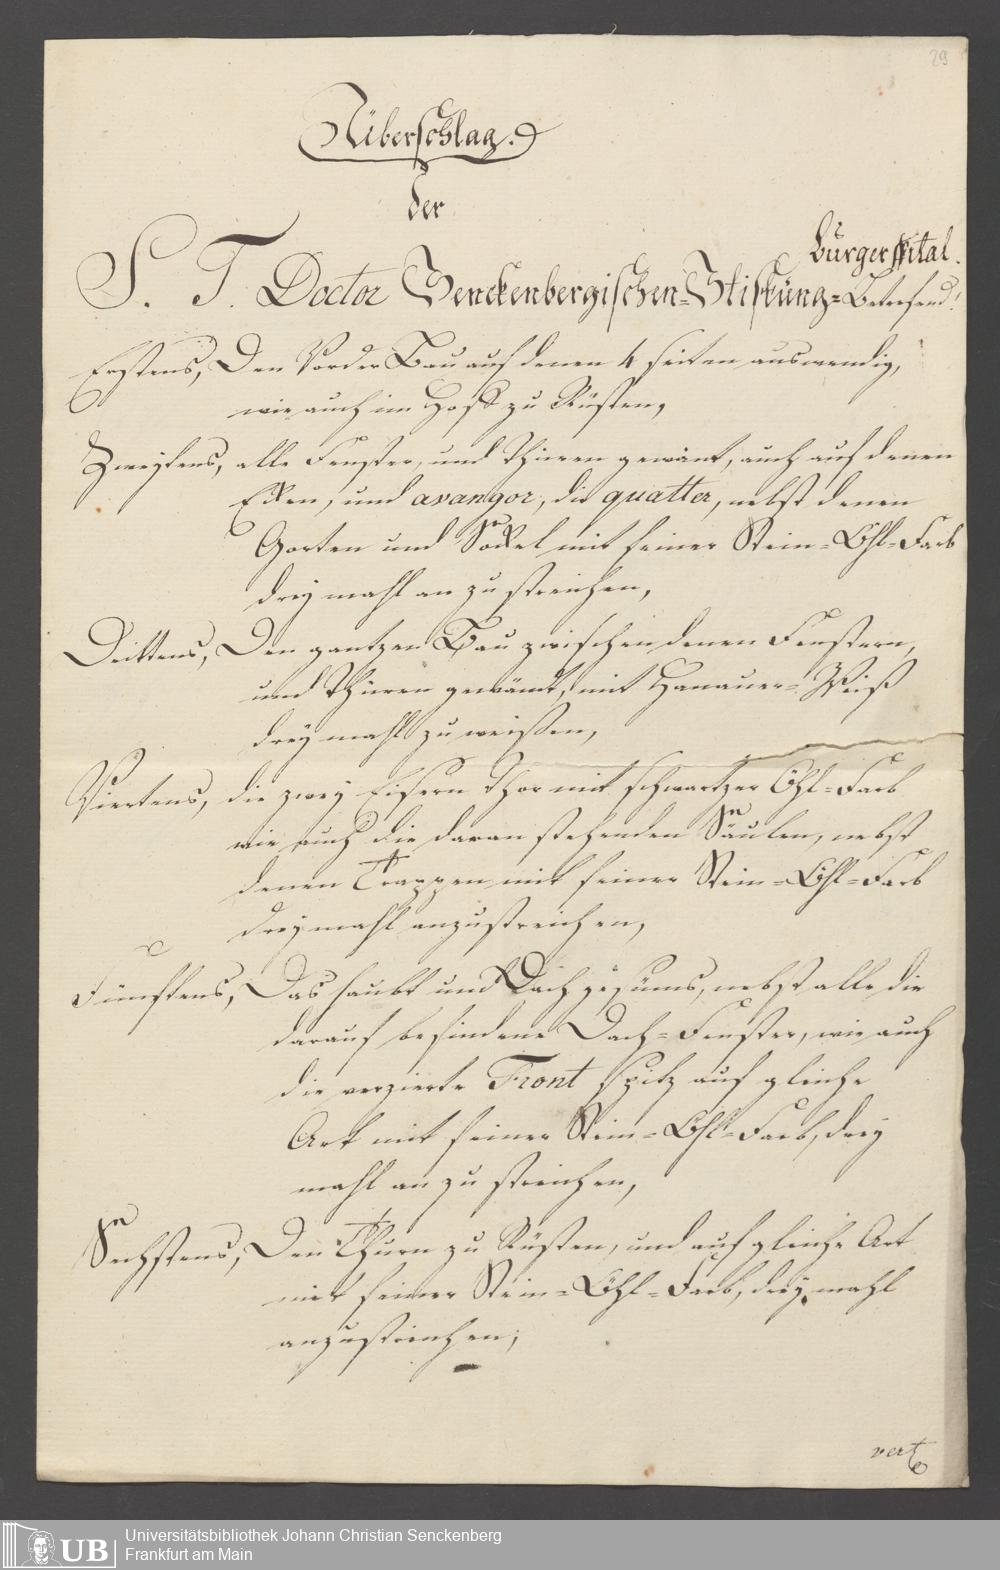 29
Überschlag.
der
Burgerspital.
S. T. Doctor Senckenbergischen-Stiftung=Betrefend!
Erstens, Den Vorder Bau auf denen 4 seiten auswendig,
wie auch im Hoff zu Rüsten,
Zweytens, alle Fenster, und Thüren gewänt, auch auf denen
Eken, und avangor, die quatter, nebst denen
Gorten und Sockel mit feiner Stein=Öhl=Farb
drey mahl an zu streichen,
Drittens, Den gantzen Bau zwischen denen Fenstern,
und Thüren gewändt, mit Hanauer=Weiß
drey mahl zu weißen,
Viertens, die zwey Eisern Thor mit schwartzer Öhl=Farb
wie auch die daran stehenden Säulen, nebst
denen Trappen mit feiner Stein=Öhl=Farb
drey mahl anzustreichen,
Fünftens, Das haubt und Dach gesüms, nebst alle die
darauf befindene Dach=Fenster, wie auch
die verzierte Front spitz auf gleiche
Art mit feiner Stein=Öhl=Farb, drey
mahl an zu streichen,
Sechstens, Den Thurn zu Rüsten, und auf gleiche Art
mit feiner Stein=Öhl=Farb, drey mahl
anzustreichen;
vert
UB
Universitätsbibliothek Johann Christian Senckenberg
Frankfurt am Main